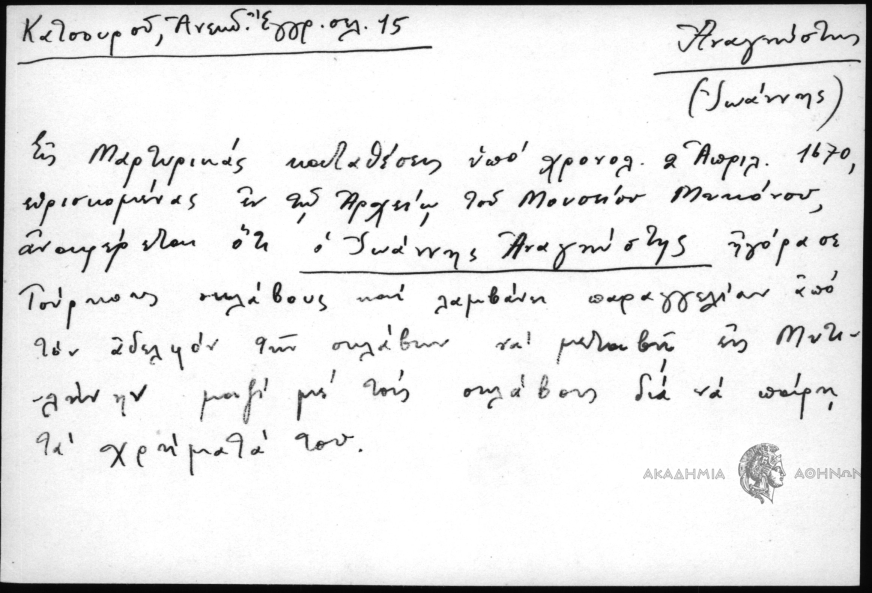 Κατσουροῦ, Ἀνεκδ. Ἔγγρ. σελ. 15
Ἀναγνώστης
(Ἰωάννης)
Εἰς Μαρτυρικάς καταθέσεις ὑπό χρονολ. 2 Ἀπριλ. 1670,
εὑρισκομένας ἐν τῷ Ἀρχείῳ τοῦ Μουσείου Μυκόνου,
ἀναφέρεται ὅτι ὁ Ἰωάννης Ἀναγνώστης ἠγόρασε
Τούρκους σκλάβους καί λαμβάνει παραγγελίαν ἀπό
τόν ἀδελφόν τῶν σκλάβων νά μεταβῇ εἰς Μυτι-
-λήνην μαζί μέ τούς σκλάβους διά νά πάρῃ
τά χρήματά του.
ΑΚΑΔΗΜΙΑ ΑΘΗΝΩΝ